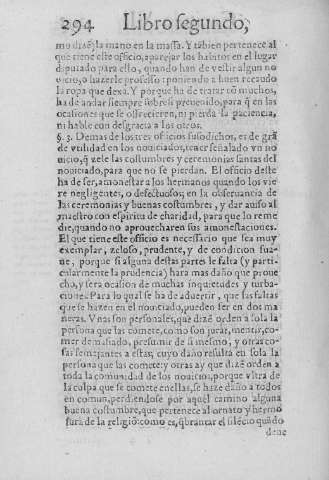 294 Libro segundo,
mo drasela mano en la massa. Y tãbien pertenece al
que tiene este officio, aparejar los habitos en el lugar
diputado para ello, quando han de vestir algun no
uicio, o hazerle professo: poniendo a buen recaudo
la ropa que dexa. Y porque ha de tratar cõ muchos,
ha de andar siempre sobre si preuenido, para q̃ en las
ocasiones que se offrecieren, ni pierda la paciencia,
ni hable con desgracia a los otros.
§. 3. Demas de los tres officios susodichos, es de grã
de vtilidad en los nouiciados, tener señalado vn no
uicio, q̃ zele las costumbres y ceremonias santas del
nouiciado, para que no se pierdan. El officio deste
ha de ser, amonestar a los hermanos quando los vie
re negligentes, o defectuosos, en la obseruancia de
las ceremonias y buenas costumbres, y dar auiso al
maestro con espiritu de charidad, para que lo reme
die, quando no aprouecharen sus amonestaciones.
El que tiene este officio es necessario que sea muy
exemplar, zeloso, prudente, y de condicion sua-
ue, porque si alguna destas partes le falta (y parti-
cularmente la prudencia) hara mas daño que proue
cho, y sera ocasion de muchas inquietudes y turba-
ciones. Para lo qual se ha de aduertir, que las faltas
que se hazen en el nouiciado, pueden ser en dos ma
neras. Vnas son personales, que dizẽ orden a sola la
persona que las comete, como son jurar, mentir, co-
mer demasiado, presumir de si mesmo, y otras co-
sas semejantes a estas, cuyo daño resulta en sola la
persona que las comete: y otras ay que dizẽ orden a
toda la comunidad de los nouicios, porque vltra de
la culpa que se comete en ellas, se haze daño a todos
en comun, perdiendose por aquel camino alguna
buena costumbre, que pertenece al ornato y hermo
sura de la religiõ: como es, q̃brantar el silẽcio quãdo
deue